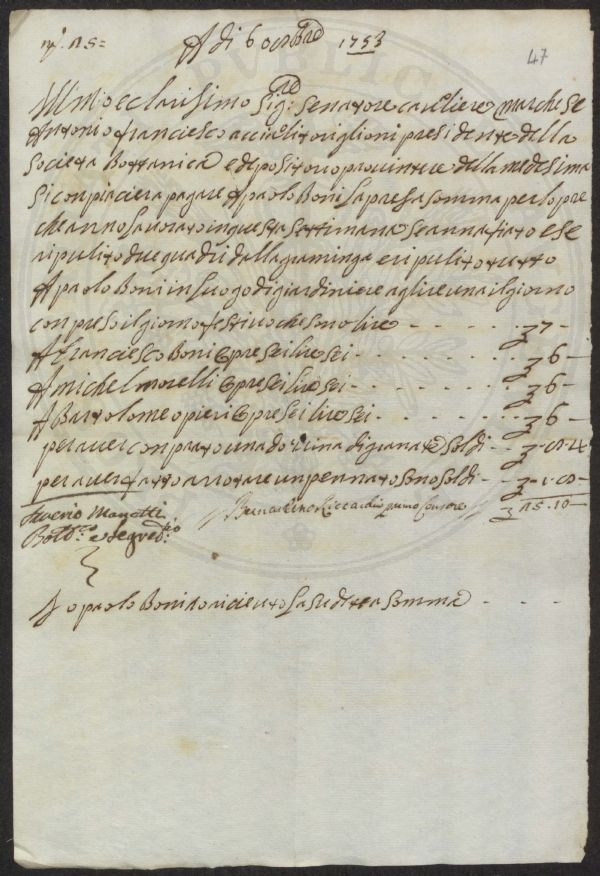 A di 6 ottobre 1753
47
Illmo e clarisimo Sig:re Senatore cavaliere marchese
Antonio Franciesco acciaioli toriglioni presidente della
Societa Bottanica e depositario proveditore della medesima
Si conpiaciera pagare A paolo Boni La presa somma per lopre
che anno Lavorato in questa settimana se annafiato e se
ripulito due quadri dalla graminga e ripulito tutto
A paolo Boni in luogo di giardiniere a lire una il giorno
conpreso il giorno festivo che sono lire - - - - 7 -
A Franciesco Boni opre sei lire sei - - - - 6 -
A michel morelli opre sei lire sei - - - - 6 -
A Bartolomeo pieri opre sei lire sei - - - - 6 -
per aver conprato una dozzina di granate Soldi - -
per aver fatto arrotare un pennato sono soldi - -
Saverio Manetti
Bott:co e Segret:rio
Bernardino Riccardi primo Censore
Io paolo Boni o riceuto La sudetta somma - - -